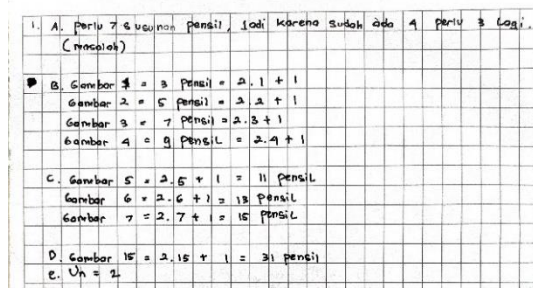 1. A. Perlu 7 susunan pensil, Jadi karena sudah ada 4 perlu 3 Lagi.
(masalah)
B. Gambar 1 = 3 Pensil = 2.1 + 1
Gambar 2 = 5 Pensil = 2.2 + 1
Gambar 3 = 7 Pensil = 2.3 + 1
Gambar 4 = 9 PensiL = 2.4 + 1
C. Gambar 5 = 2.5 + 1 = 11 PensiL
Gambar 6 = 2.6 + 1 = 13 Pensil
Gambar 7 = 2.7 + 1 = 15 PensiL
D. Gambar 15 = 2.15 + 1 = 31 pensil
e. Un = 2